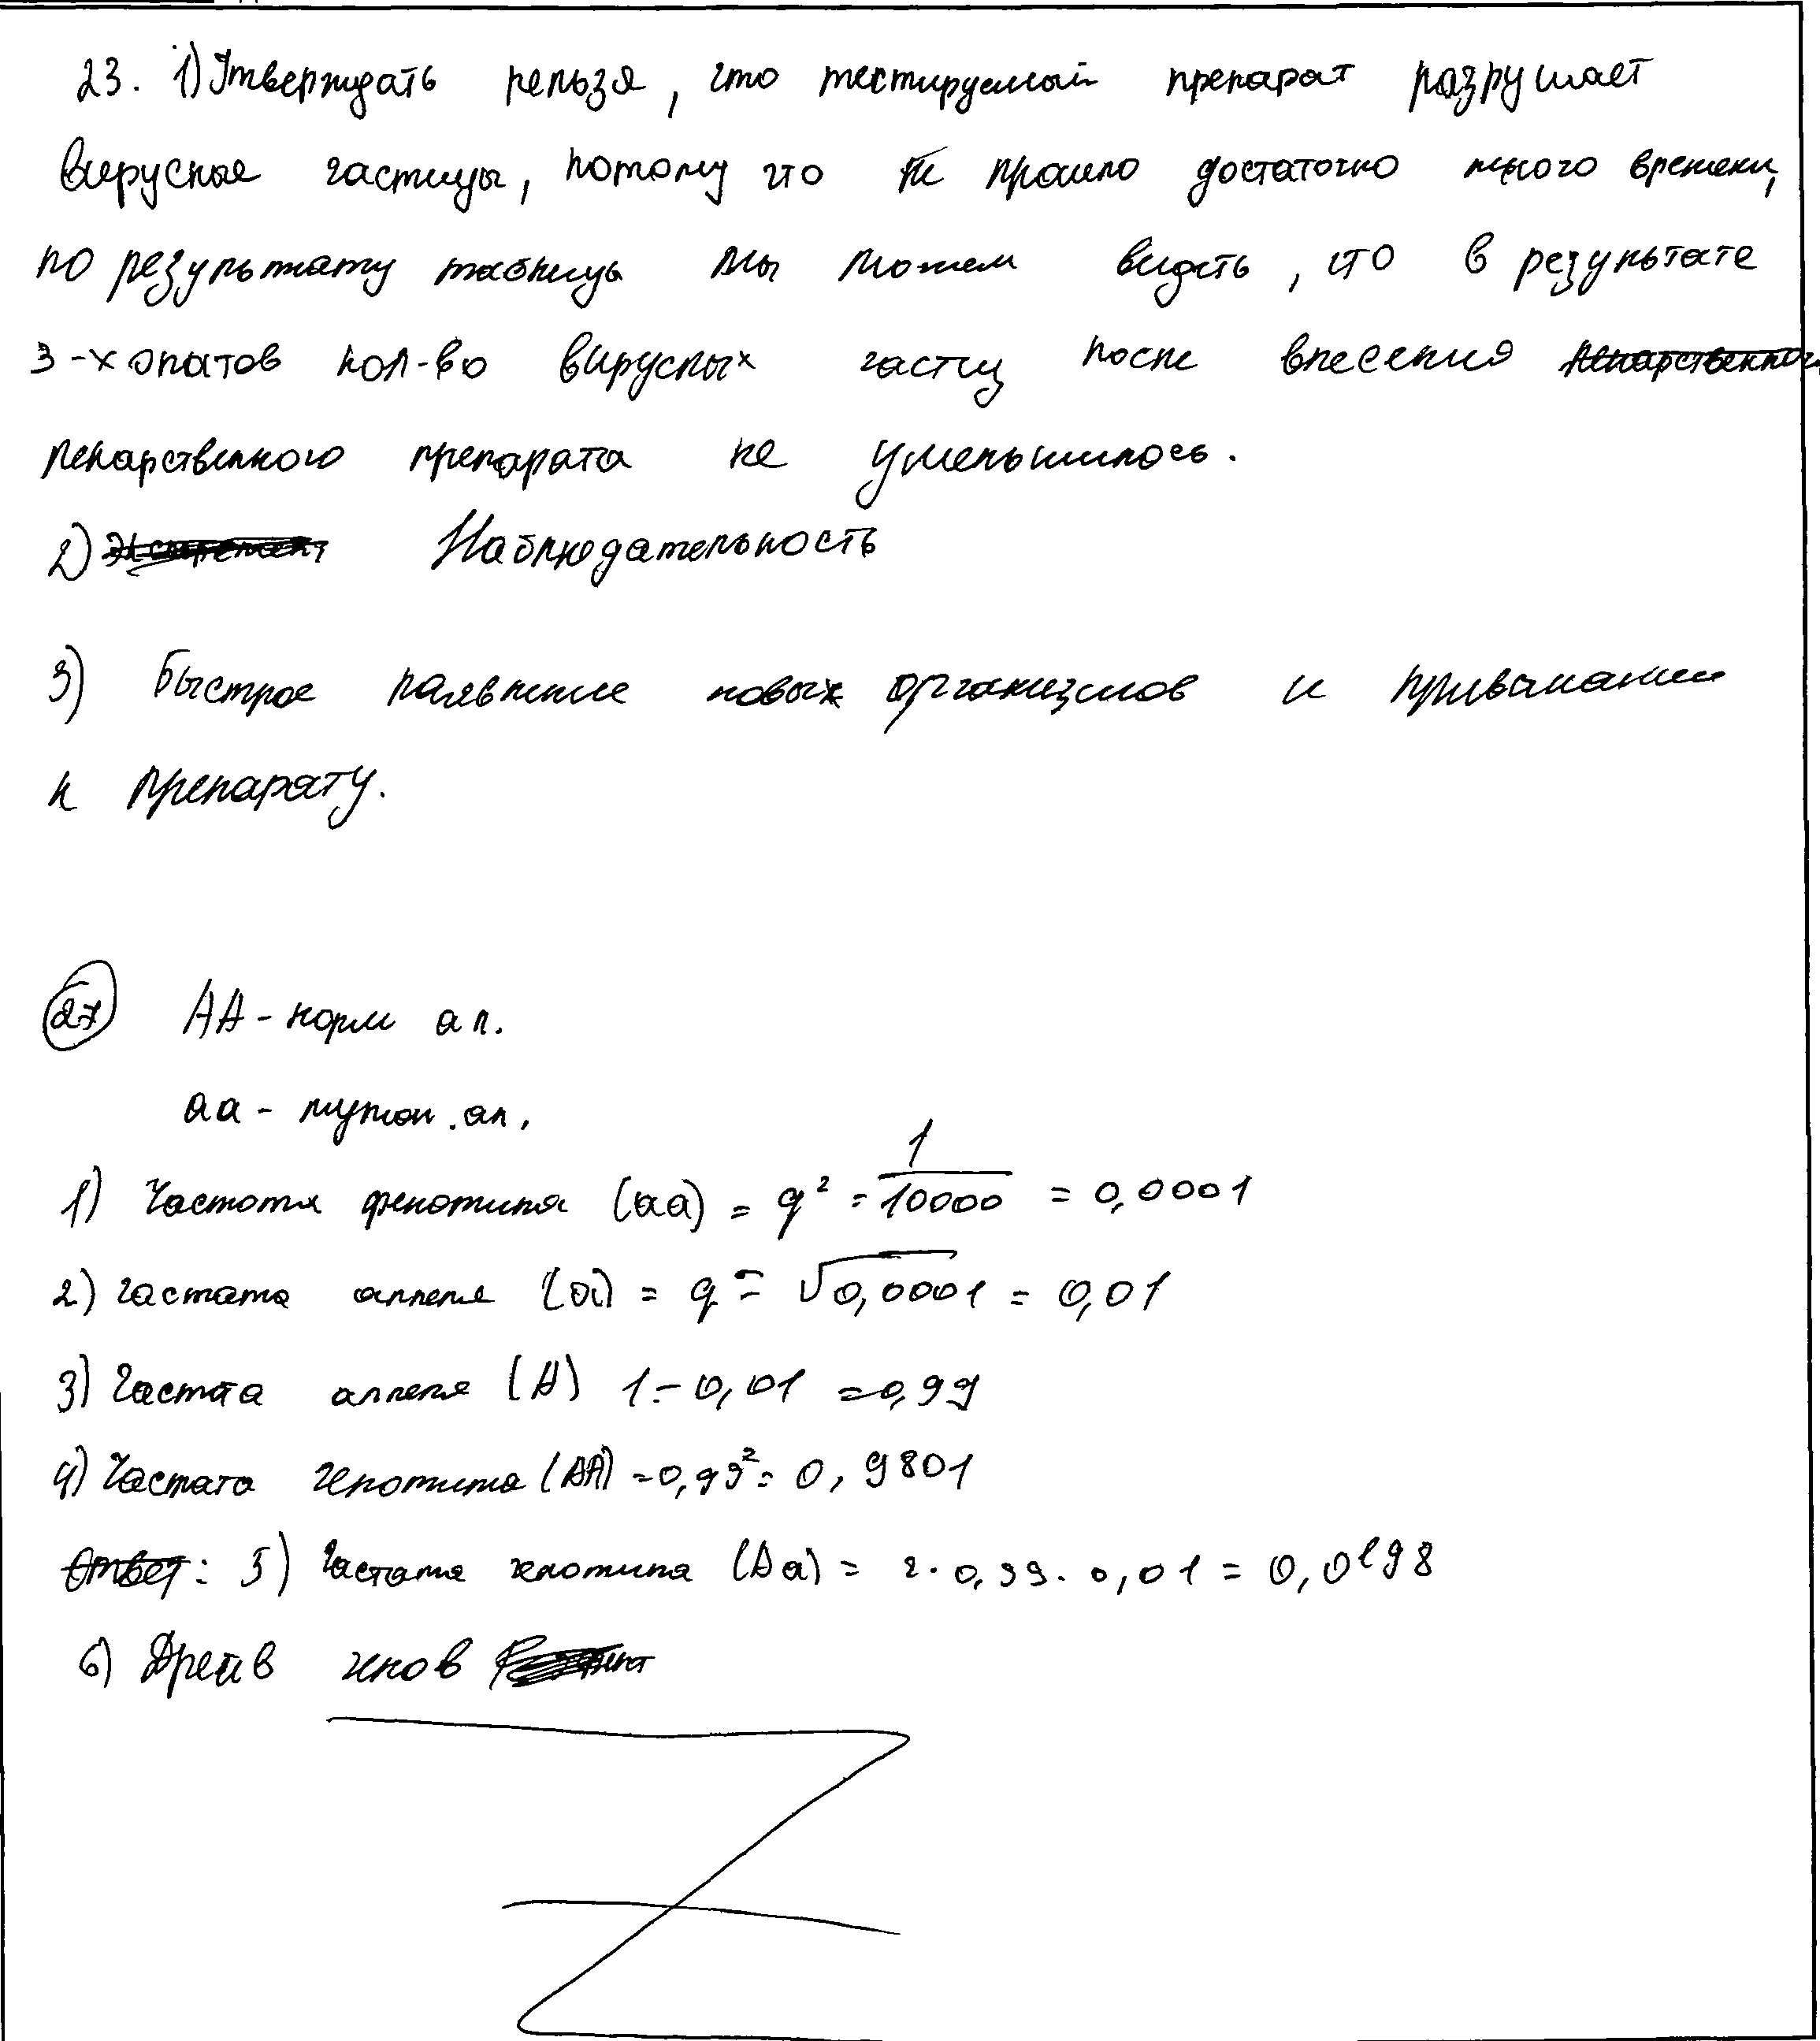 23. 1) Утверждать нельзя, что тестируемый препарат разрушает
вирусные частицы, потому что прошло достаточно много времени,
по результату таблицы мы можем видеть, что в результате
3-х опытов кол-во вирусных частиц после внесения лекарственного
лекарственного препарата не уменьшилось.
2) Эксперемент Наблюдательность
3) Быстрое паявление новых организмов и привыкание
к препарату.
27 AA - норм ал.
aa - мутон. ал.
1) Частота фенотипа (aa) = q² = 1/10000 = 0,0001
2) частата аллеля (a) = q = √0,0001 = 0,01
3) Частота аллеля (A) 1 - 0,01 = 0,99
4) Частата генотипа (AA) = 0,99² = 0,9801
Ответ: 5) Частата генотипа (Aa) = 2 · 0,99 · 0,01 = 0,0198
6) Дрейв генов